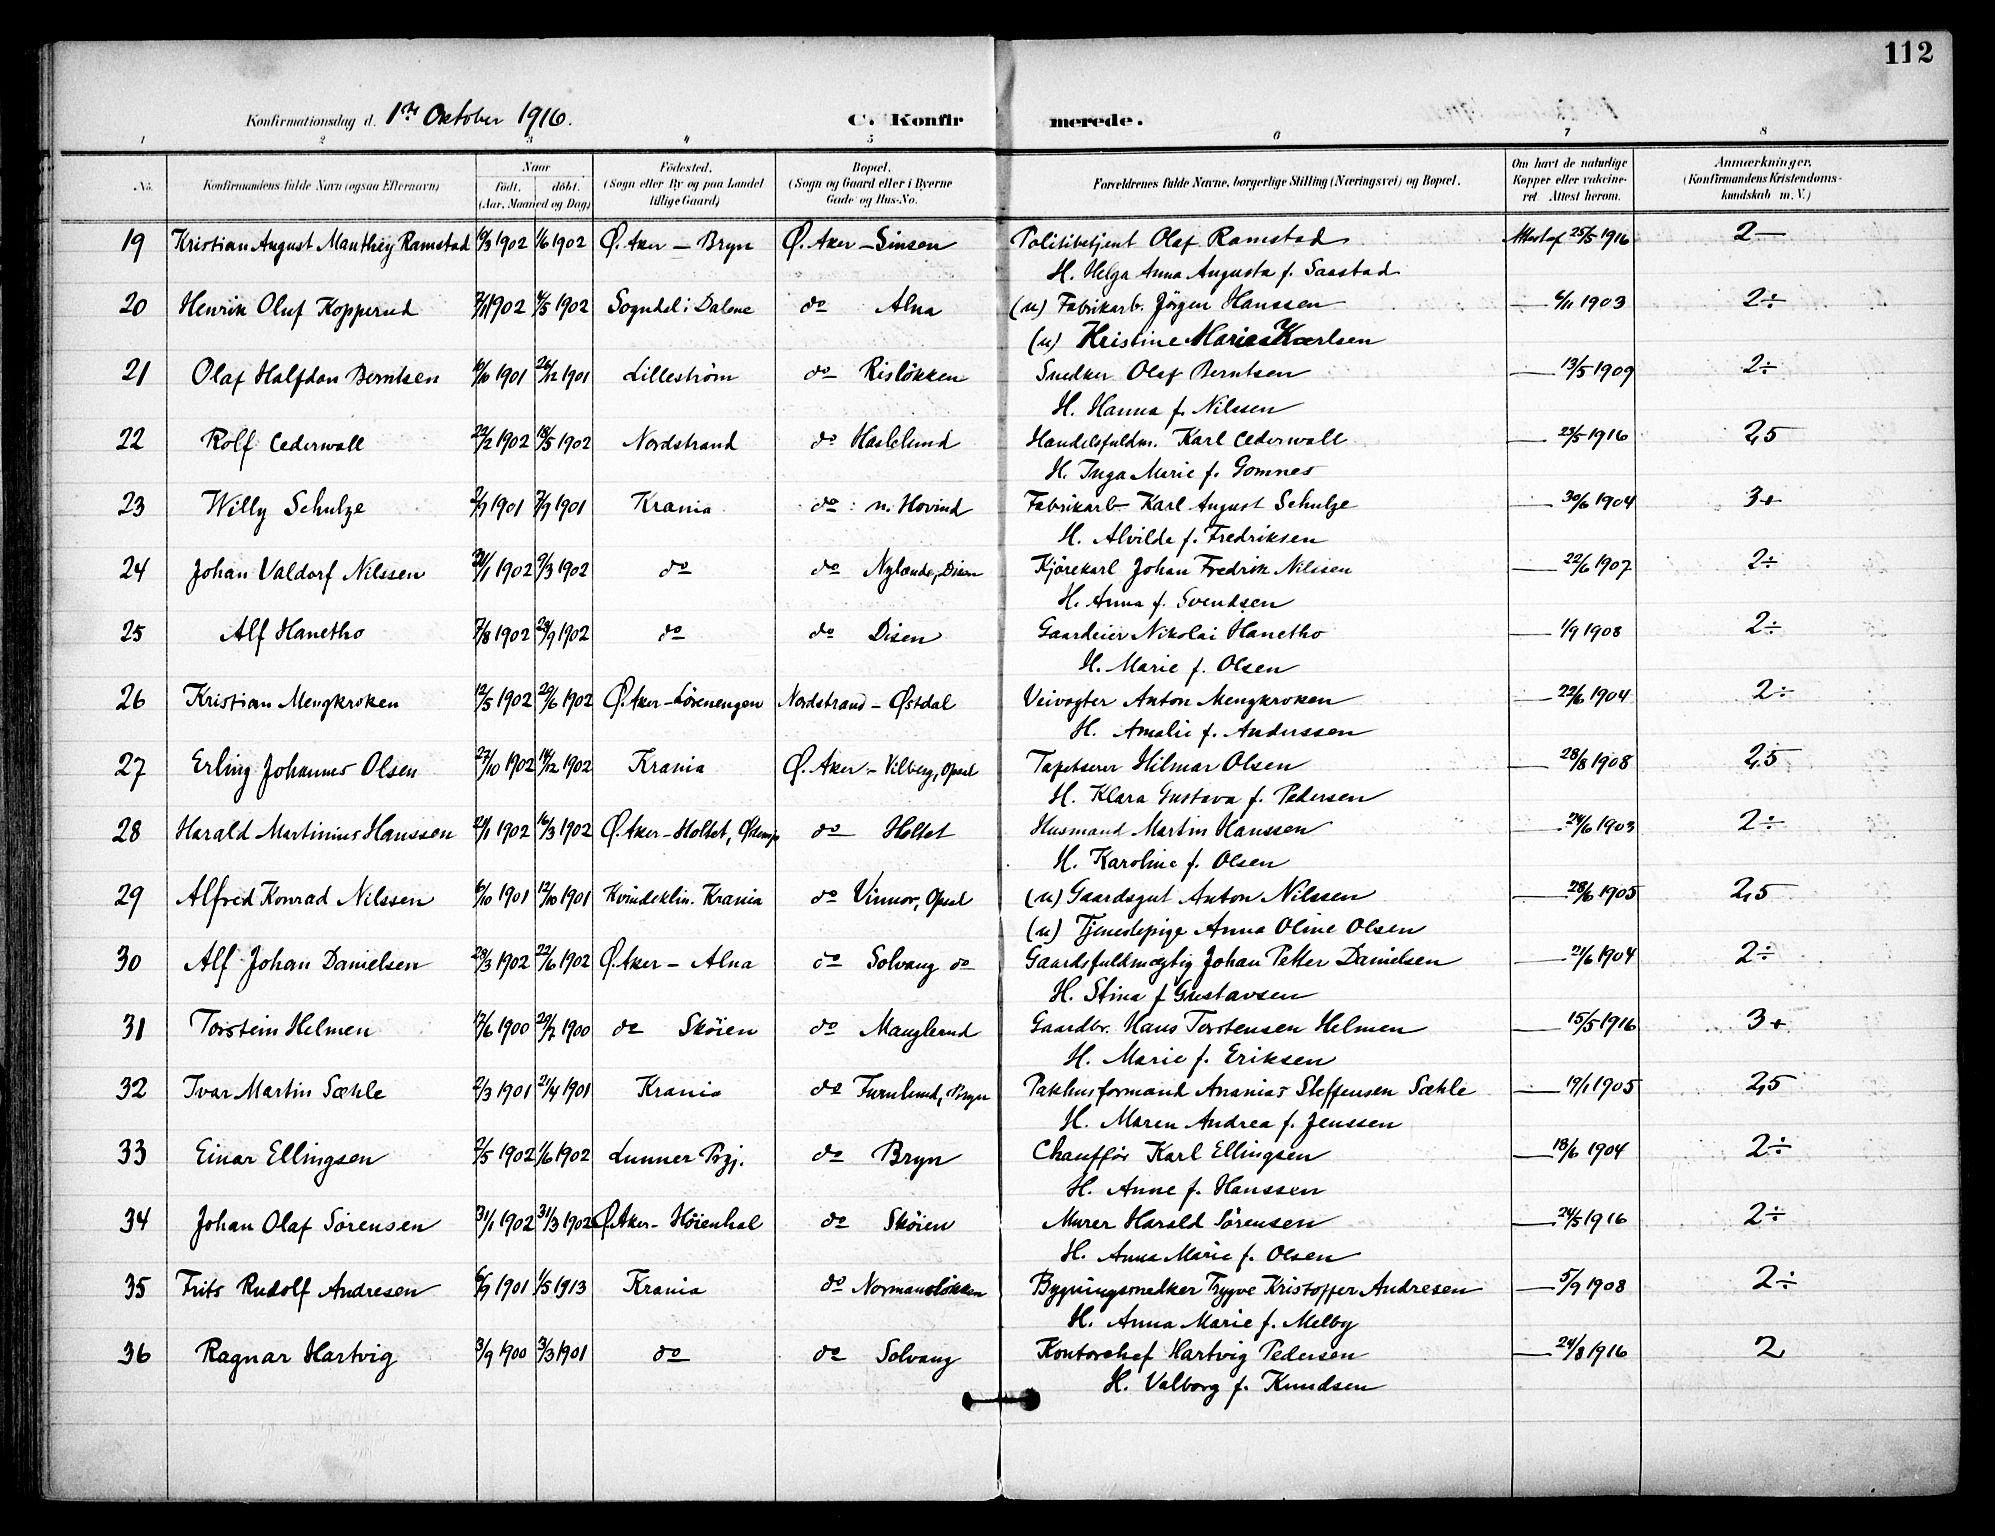 112
Konfirmationsdag d. 1ste Oktober 1916. C. Konfirmerede.
1 2 3 4 5 6 7 8
No. Konfirmandens fulde Navn (ogsaa Efternavn) Naar født. døbt. (Aar, Maaned og Dag) Födested. (Sogn eller By og paa Landet tillige Gaard) Bopæl. (Sogn og Gaard eller i Byerne Gade og Hus-No. Forældrenes fulde Navne, borgerlige Stilling (Næringsvei) og Bopæl. Om havt de naturlige Kopper eller vakcineret. Attest herom. Anmærkninger. (Konfirmandens Kristendomskundskab m. V.)
19 Kristian August Manthey Ramstad 19/3 1902 1/6 1902 Ø. Aker – Bryn Ø. Aker – Sinsen Politibetjent Olaf Ramstad Attest af 25/5 1916 2 —
H. Helga Anna Augusta f. Saastad
20 Henrik Oluf Kopperud 7/1 1902 4/5 1902 Sogndal i Dalene do Alna (u) Fabrikarb. Jørgen Hanssen — 6/11 1903 2 ÷
(u) Kristine Marie Karlsen
21 Olaf Halfdan Berntsen 6/10 1901 26/12 1901 Lillestrøm do Risløkken Snedker Olaf Berntsen — 13/5 1909 2 ÷
H. Hanna f. Nilssen
22 Rolf Cederwall 22/2 1902 18/5 1902 Nordstrand do Haslelund Handelsfuldm. Karl Cederwall — 23/5 1916 2,5
H. Inga Marie f. Gomnes
23 Willy Schulze 2/7 1901 7/9 1901 Krania do n. Hovind Fabrikarb Karl August Schulze — 30/6 1904 3 +
H. Alvilde f. Fredriksen
24 Johan Valdorf Nilssen 21/1 1902 9/3 1902 do do Nylænde, Disen Kjørekarl Johan Fredrik Nilssen — 22/6 1907 2 ÷
H. Anna f. Svendsen
25 Alf Hanetho 7/8 1902 28/9 1902 do do Disen Gaardeier Nikolai Hanetho — 1/9 1908 2 ÷
H. Marie f. Olsen
26 Kristian Mengkroken 12/5 1902 29/6 1902 Ø. Aker – Lørenengen Nordstrand – Østdal Veivogter Anton Mengkroken — 22/6 1904 2 ÷
H. Amalie f. Anderssen
27 Erling Johannes Olsen 27/10 1902 14/12 1902 Krania Ø. Aker – Vilberg, Opsal Tapetserer Hilmar Olsen — 28/8 1908 2,5
H. Klara Gustava f. Pedersen
28 Harald Martinius Hanssen 21/1 1902 16/3 1902 Ø. Aker – Holtet, do Holtet Husmand Martin Hanssen — 24/6 1903 2 ÷
H. Karoline f. Olsen
29 Alfred Konrad Nilssen 6/10 1901 12/10 1901 Kvindeklin. Krania do Vinnor, Opsal (u) Gaardsgut Anton Nilssen — 28/6 1905 2,5
(u) Tjenestepige Anna Oline Olsen
30 Alf Johan Danielsen 28/3 1902 22/6 1902 Ø. Aker – Alna do Solvang do Gaardsfuldmægtig Johan Petter Danielsen — 21/6 1904 2 ÷
H. Stina f Gustavsen
31 Torstein Helmen 12/6 1900 29/7 1900 do Skøien do Manglerud Gaardbr. Hans Torstensen Helmen — 15/5 1916 3 +
H. Marie f. Eriksen
32 Ivar Martin Sæhle 2/3 1901 21/4 1901 Krania do Furulund, Bryn Pakhusformand Ananias Steffensen Sæhle — 19/1 1905 2,5
H. Maren Andrea f. Jenssen
33 Einar Ellingsen 2/5 1902 1/6 1902 Lunner Prgj. do Bryn Chauffør Karl Ellingsen — 18/6 1904 2 ÷
H. Anne f. Hanssen
34 Johan Olaf Sørensen 3/1 1902 31/3 1902 Ø. Aker – Høienhal do Skøien Murer Harald Sørensen — 24/5 1916 2 ÷
H. Anna Marie f. Olsen
35 Frits Rudolf Andresen 6/9 1901 1/5 1913 Krania do Normansløkken Bygningssnedker Trygve Kristoffer Andresen — 5/9 1908 2 ÷
H. Anna Marie f. Melby
36 Ragnar Hartvig 3/9 1900 3/3 1901 do do Solvang Kontorchef Hartvig Pedersen — 24/8 1916 2
H. Valborg f. Knudsen